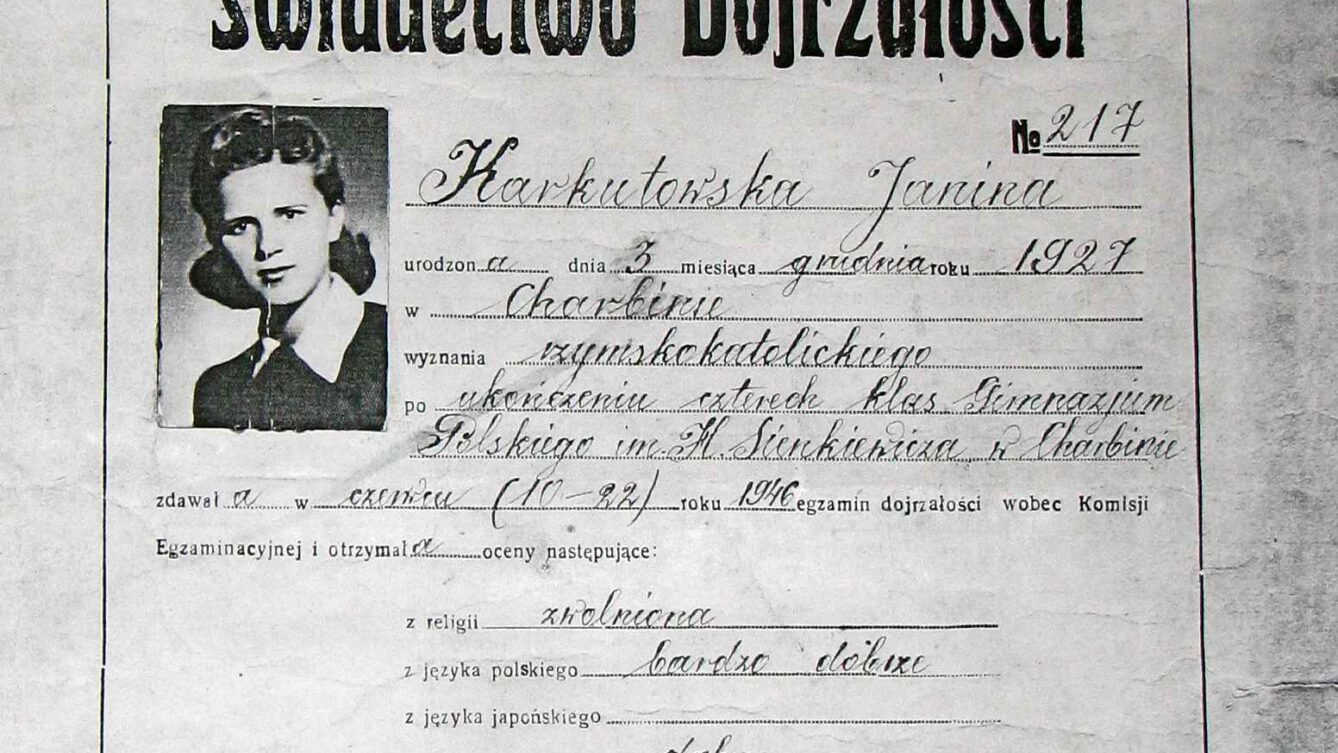 Świadectwo Dojrzałości
№ 217
Karkutowska Janina
urodzona dnia 3 miesiąca grudnia roku 1927
w Charbinie
wyznania rzymskokatolickiego
po ukończeniu czterech klas Gimnazjum
Polskiego im. H. Sienkiewicza w Charbinie
zdawała w czerwcu (10-22) roku 1946 egzamin dojrzałości wobec Komisji
Egzaminacyjnej i otrzymała oceny następujące:
z religii zwolniona
z języka polskiego bardzo dobrze
z języka japońskiego